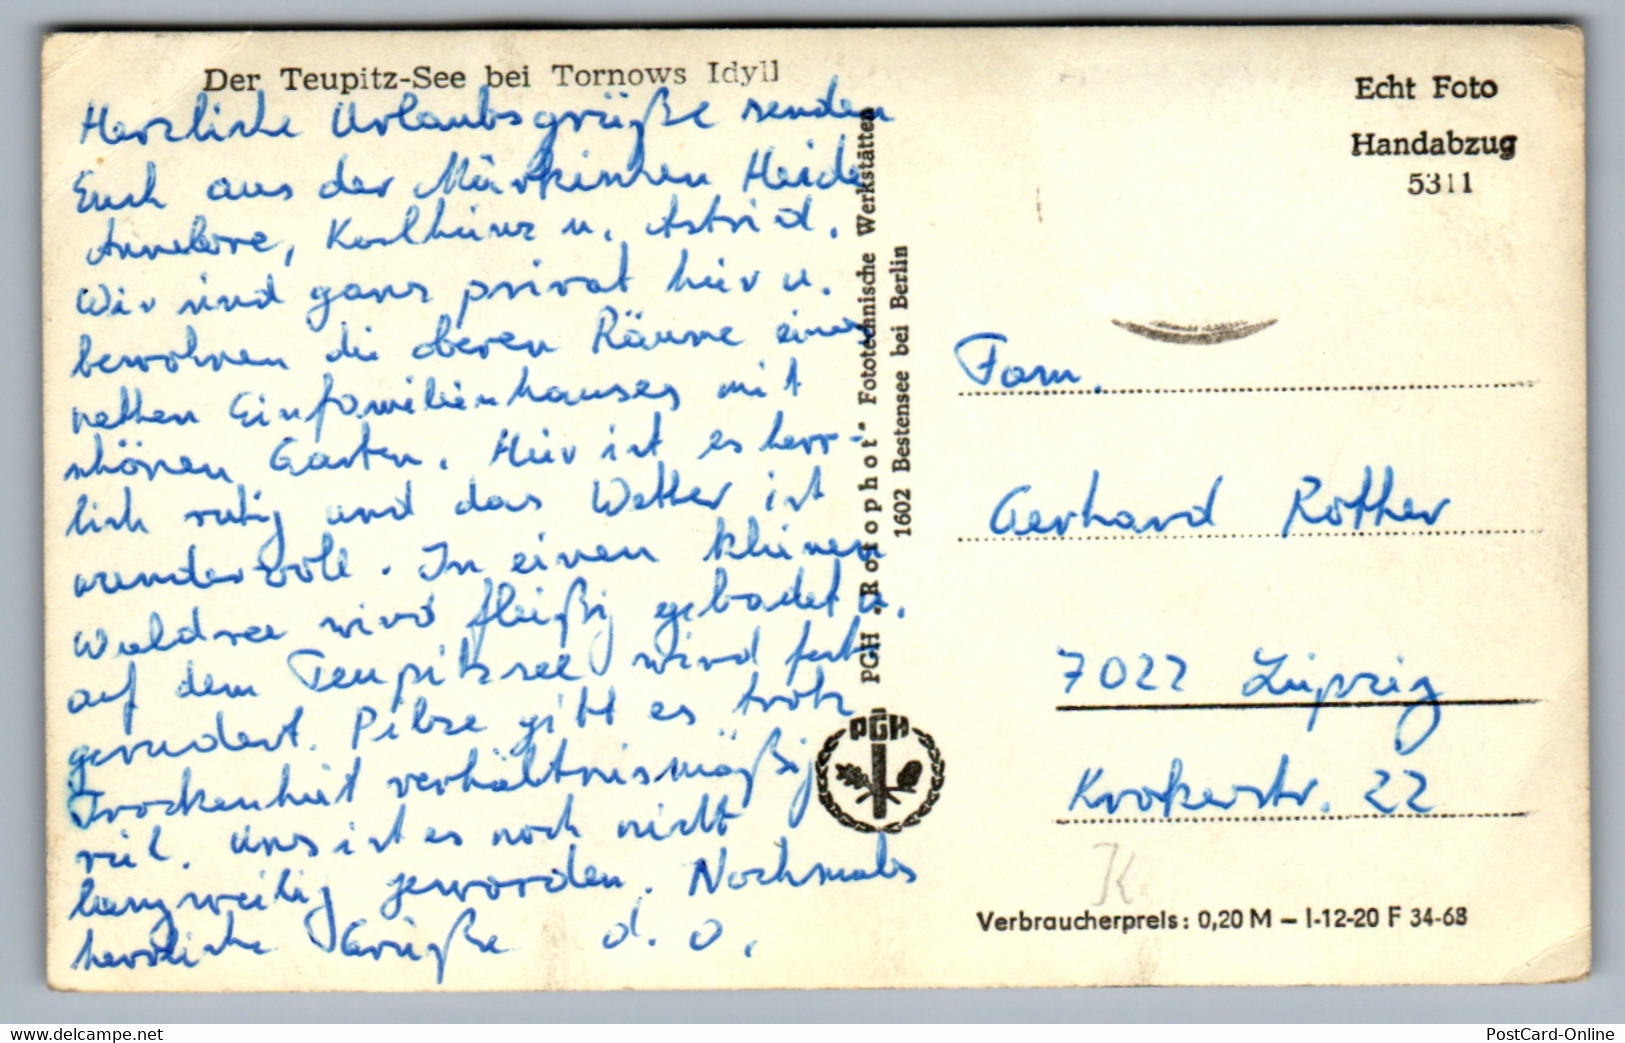 Der Teupitz-See bei Tornows Idyll
Herzliche Urlaubsgrüße senden
Euch aus der Märkischen Heide
Annelore, Karlheinz u. Astrid.
Wir sind ganz privat hier u.
bewohnen die oberen Räume eines
netten Einfamilienhauses mit
schönen Garten. Hier ist es herr-
lich ruhig und das Wetter ist
wundervoll. In einen kleinen
Waldsee wird fleißig gebadet u.
auf dem Teupitzsee wird fest
gerudert. Pilze gibt es trotz
Trockenheit verhältnismäßig
viel. Uns ist es noch nicht
langweilig geworden. Nochmals
herzliche Grüße d. O.
PGH „Rotophot" Fototechnische Werkstätten
1602 Bestensee bei Berlin
PGH
Echt Foto
Handabzug
5311
Fam.
Gerhard Rother
7022 Leipzig
Krokerstr. 22
K
Verbraucherpreis: 0,20 M – I-12-20 F 34-68
www.delcampe.net
PostCard-Online